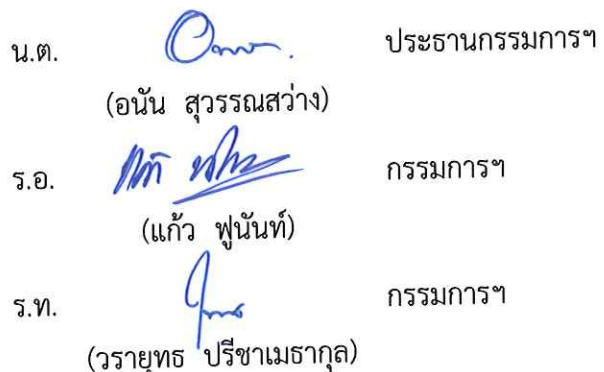 น.ต. ประธานกรรมการฯ
(อนัน สุวรรณสว่าง)
ร.อ. กรรมการฯ
(แก้ว ฟูนันท์)
ร.ท. กรรมการฯ
(วรายุทธ ปรีชาเมธากุล)